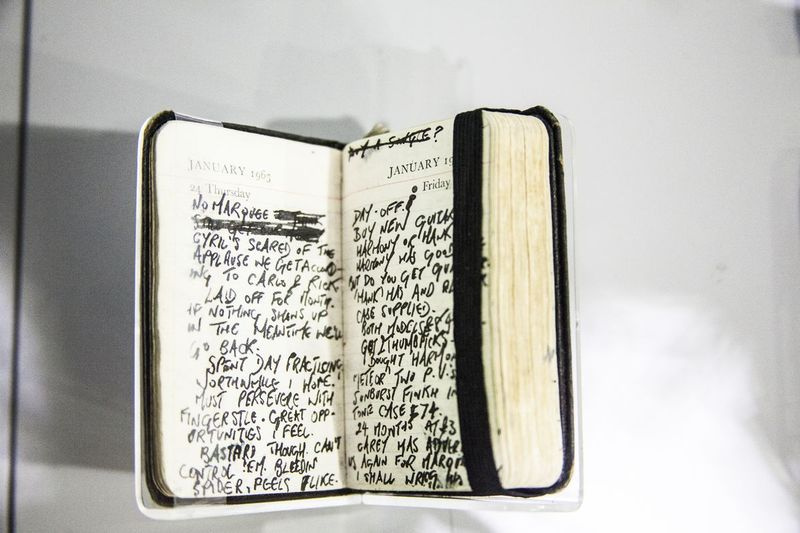 JANUARY 1963
24 Thursday
NO MARQUEE
CYRIL'S SCARED OF THE
APPLAUSE WE GET ACCORD-
ING TO CARLO & RICK.
LAID OFF FOR MONTH.
IF NOTHING SHOWS UP
IN THE MEANTIME WE'LL
GO BACK.
SPENT DAY PRACTISING,
WORTHWHILE I HOPE.
MUST PERSEVERE WITH
FINGERSTLE. GREAT OPP-
ORTUNITIES I FEEL.
BASTARD THOUGH. CAN'T
CONTROL 'EM. BLEEDIN
SPIDER, FEELS LIKE.
BUY A SINGLE?
JANUARY 19
Friday
DAY OFF.
BUY NEW GUITAR
HARMONY OR HANK
HARMONY HAS GOOD
BUT DO YOU GET
HANK HAS AND
CASE SUPPLIED.
BOTH MODELS
GET THUMBPICK
I BOUGHT HARMONY
METEOR TWO P.U.'S
SUNBURST FINISH IN
CASE £74.
24 MONTHS AT £3
CAREY HAS
US AGAIN FOR MARQ
I SHALL WRING